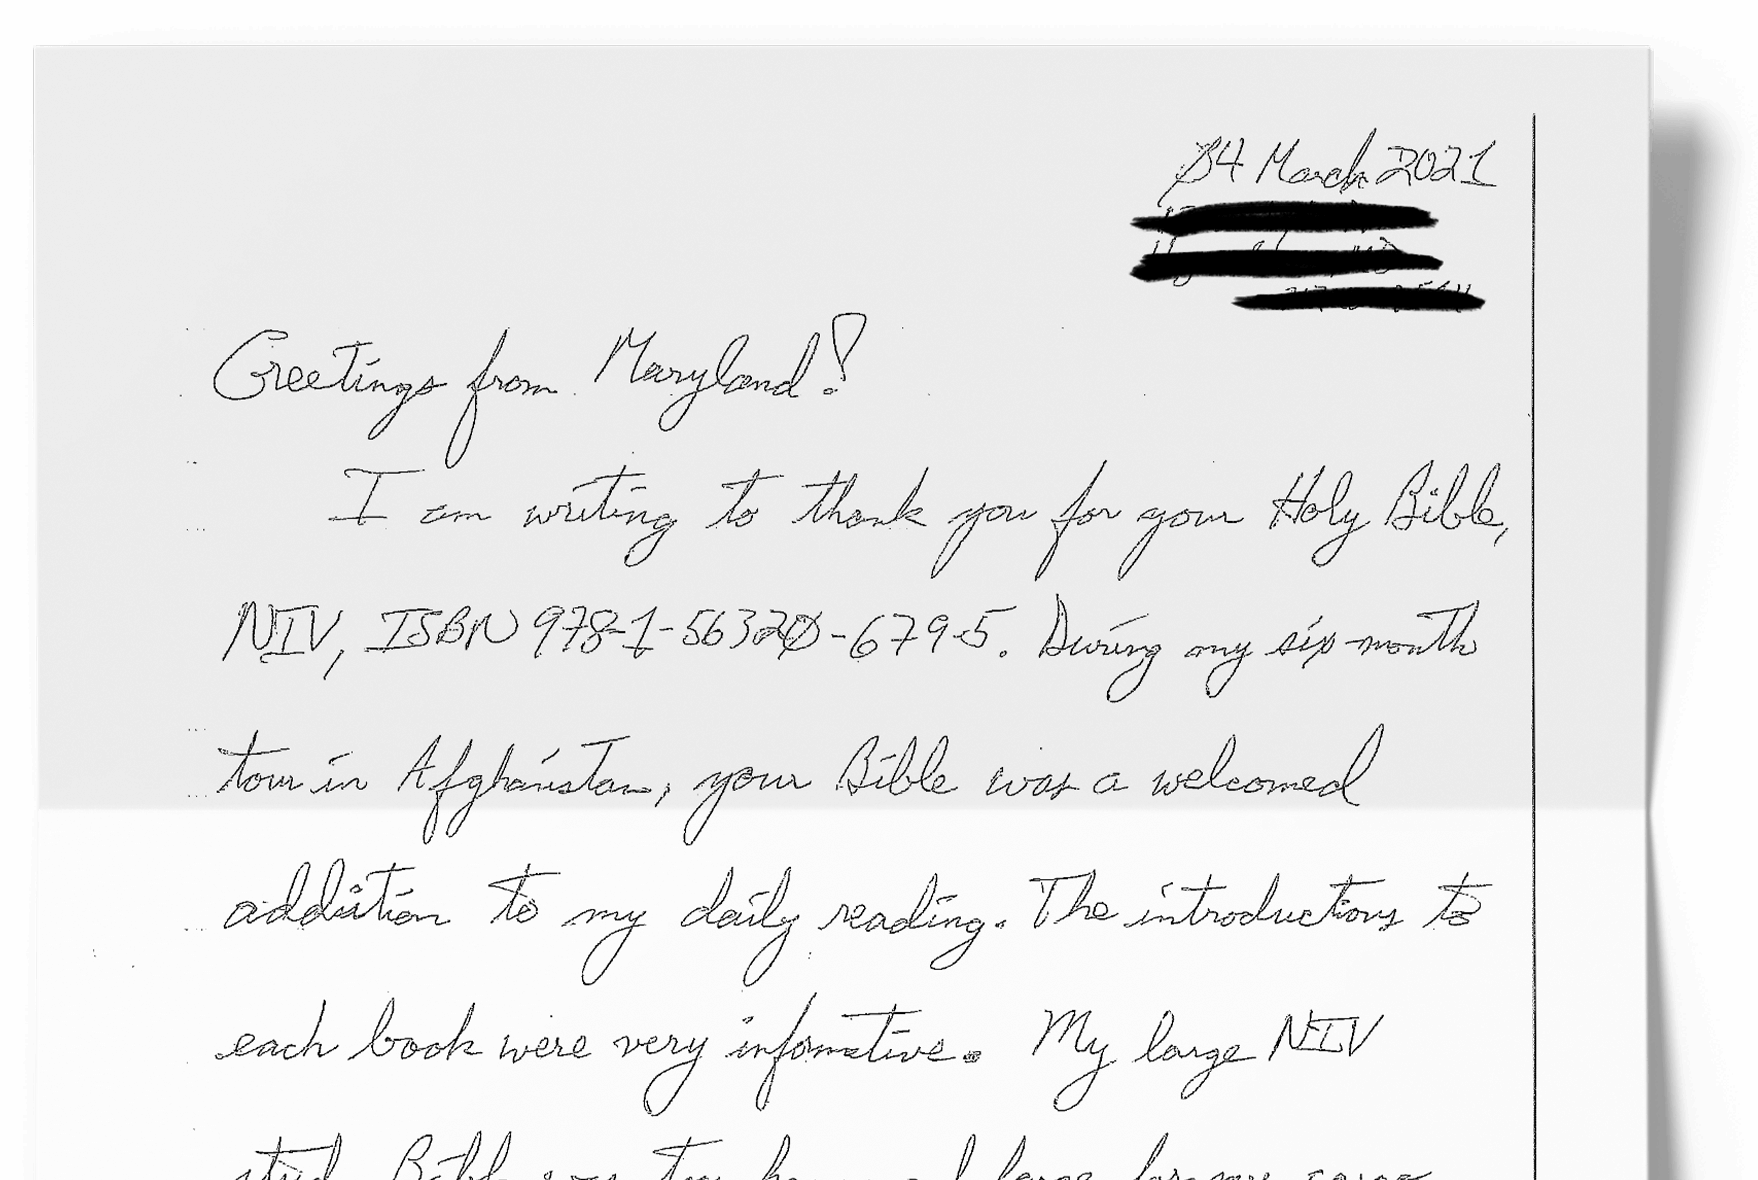 04 March 2021
Greetings from Maryland!
I am writing to thank you for your Holy Bible,
NIV, ISBN 978-1-56320-679-5. During my six-month
tour in Afghanistan, your Bible was a welcomed
addition to my daily reading. The introductions to
each book were very informative. My large NIV
Bible was too large for my